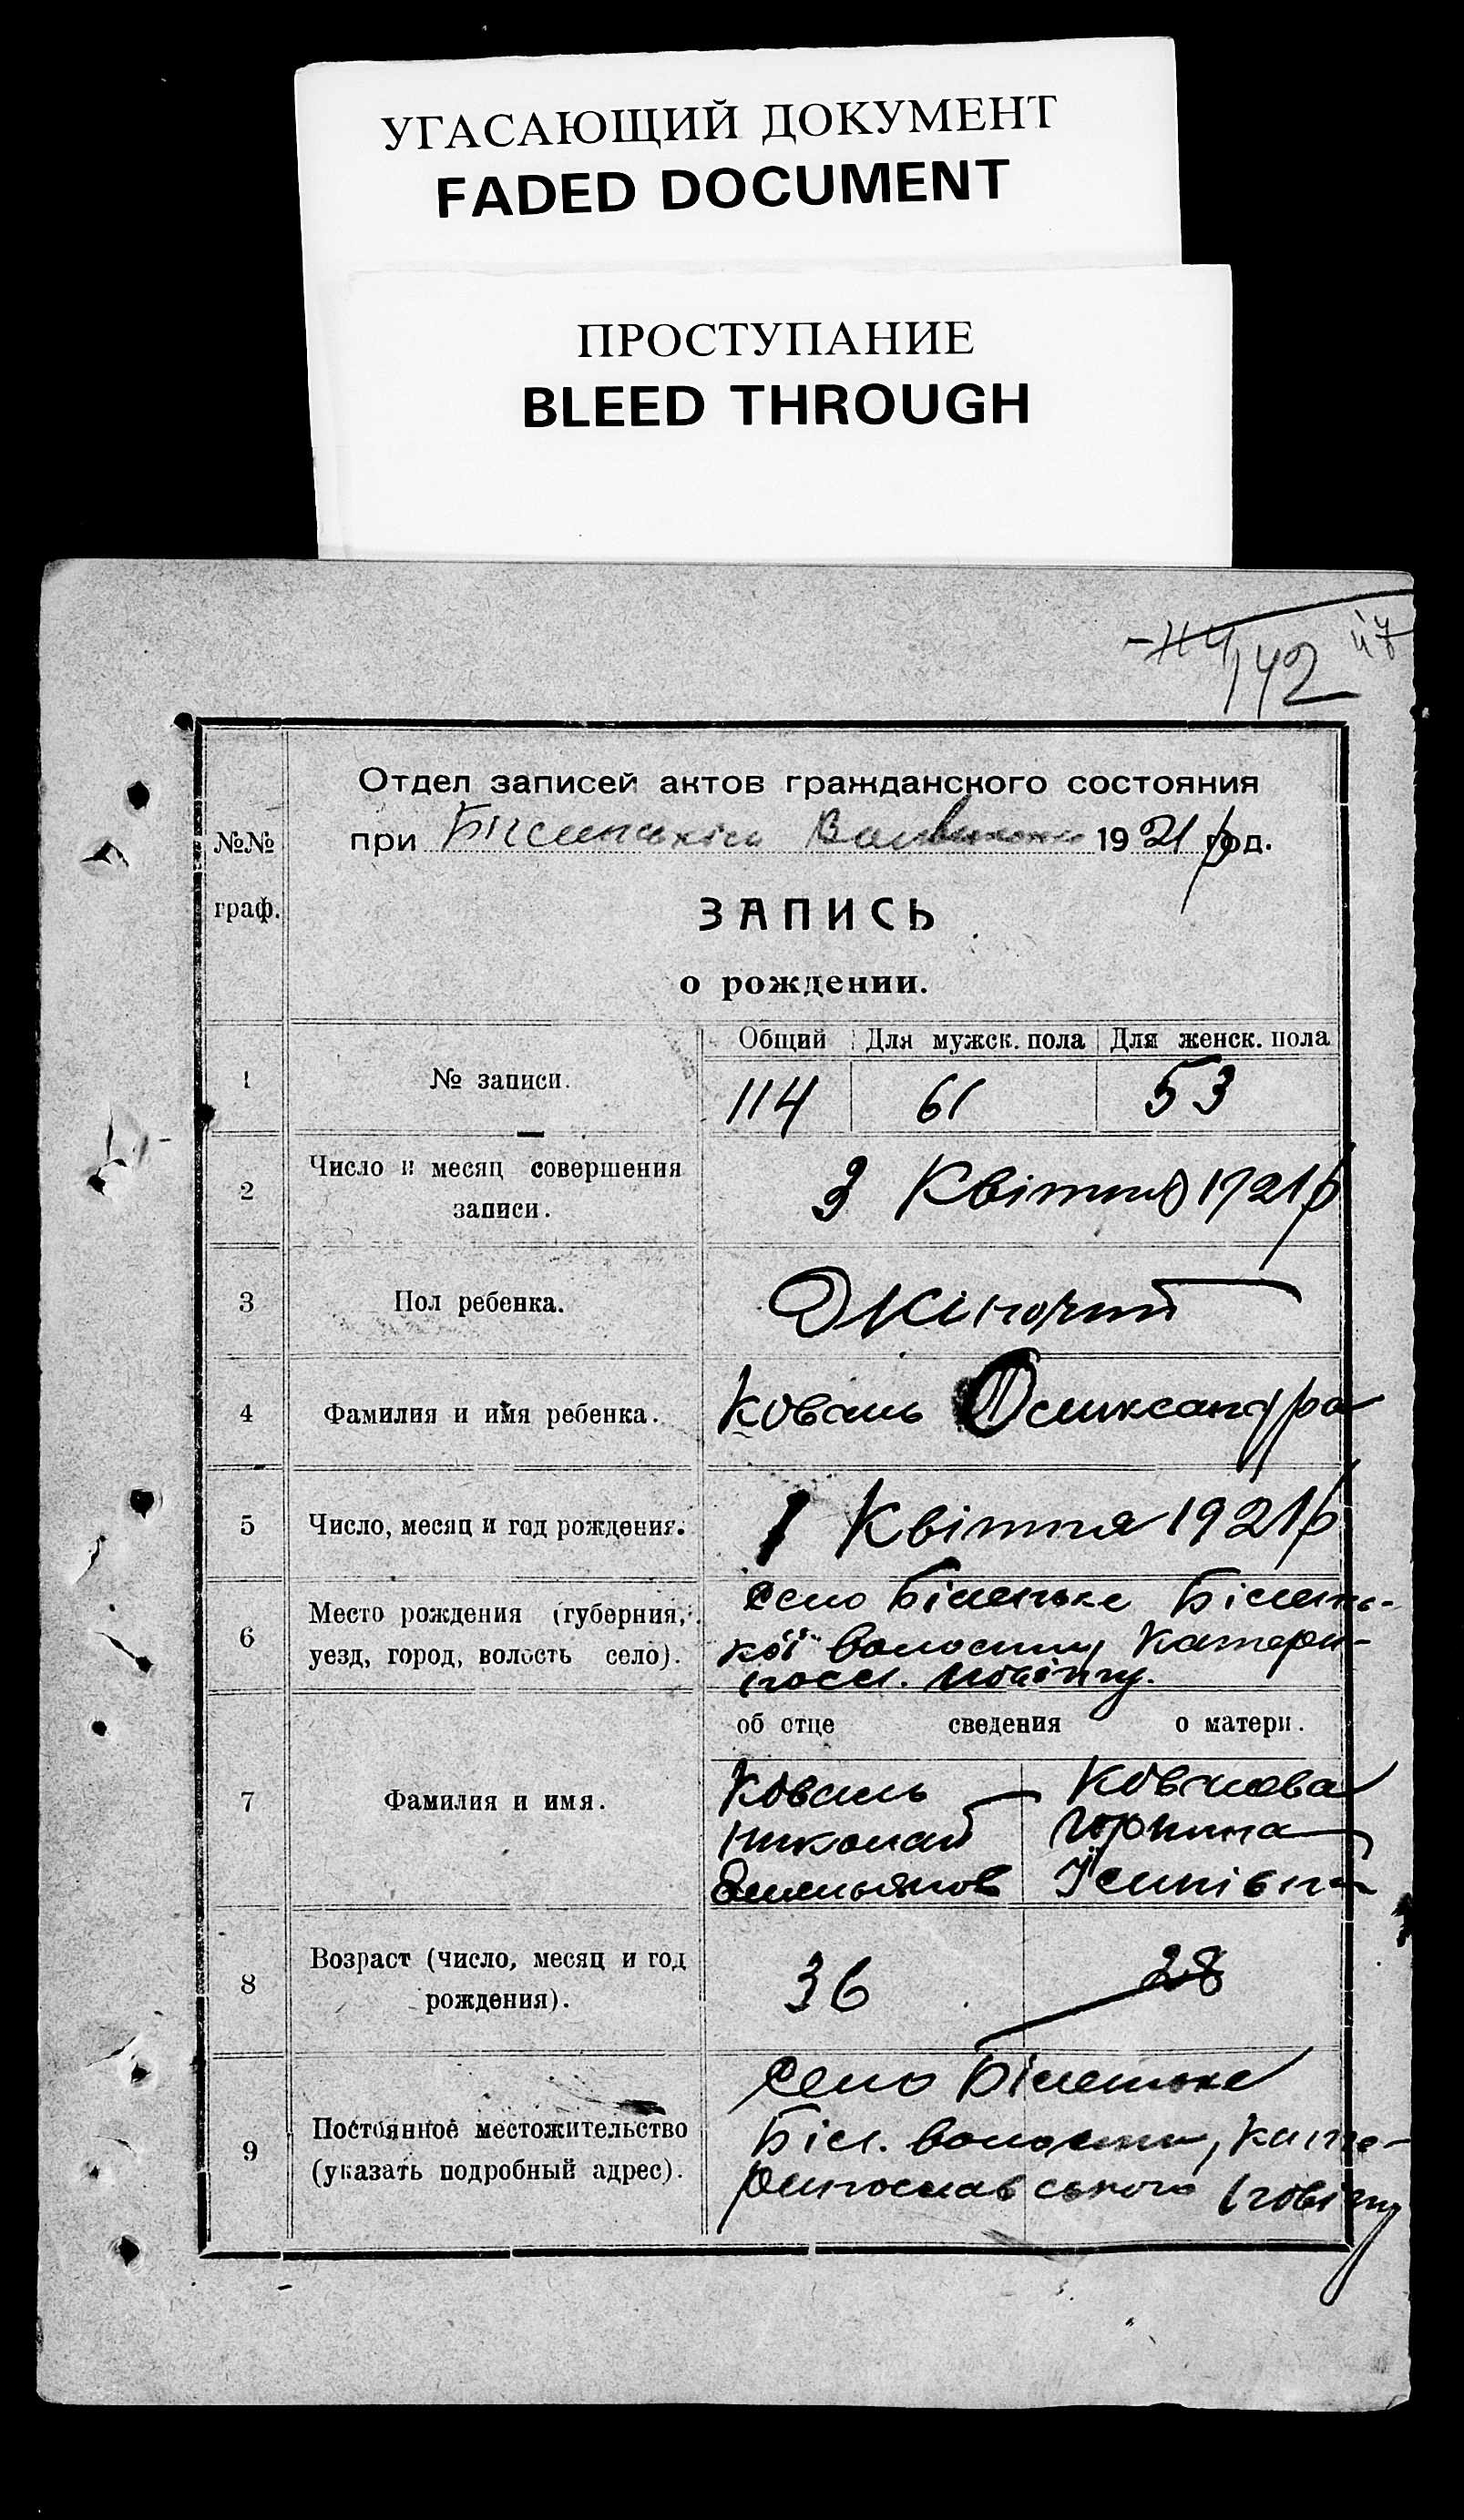 УГАСАЮЩИЙ ДОКУМЕНТ
FADED DOCUMENT
ПРОСТУПАНИЕ
BLEED THROUGH
142 47
Отдел записей актов гражданского состояния
№№ при 1921 р год.
граф.
ЗАПИСЬ
о рождении.
Общий Для мужск. пола Для женск. пола
1 № записи. 114 61 53
2 Число и месяц совершения записи. 3 Квітня 1921 р
3 Пол ребенка. Жіночий
4 Фамилия и имя ребенка. Коваль Олександра
5 Число, месяц и год рождения. 1 Квітня 1921 р
6 Место рождения (губерния, село Біленьке Білень-
уезд, город, волость село). кої волости, Катери-
носл. повіту.
об отце сведения о матери.
7 Фамилия и имя. Коваль Ковальова
Николай
Емельянов
8 Возраст (число, месяц и год рождения). 36 28
9 Постоянное местожительство село Біленьке
(указать подробный адрес). Біл. волости, Кате-
ринославського повіту